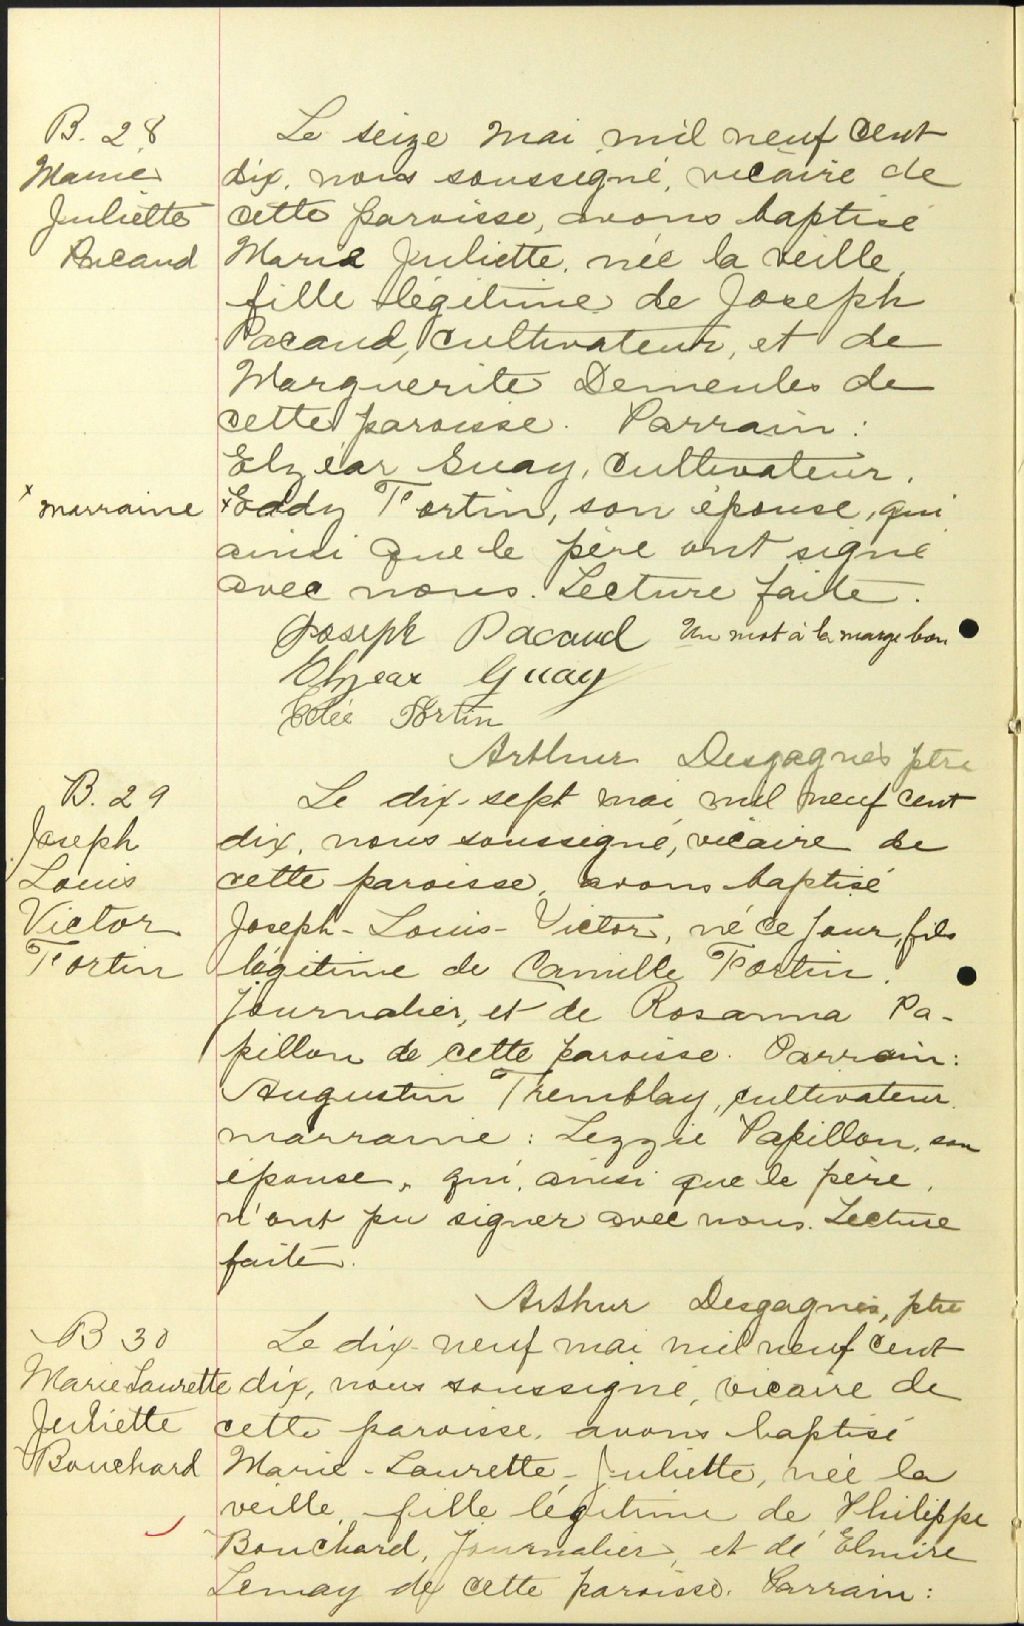 B. 28
Marie
Juliette
Pacaud
Le seize mai mil neuf cent
dix, nous soussigné, vicaire de
cette paroisse, avons baptisé
Marie Juliette, née la veille,
fille légitime de Joseph
Pacaud, cultivateur, et de
Marguerite Demeules de
cette paroisse. Parrain:
Elzéar Guay, cultivateur.
x marraine
x Eddy Fortin, son épouse, qui
ainsi que le père ont signé
avec nous. Lecture faite.
Joseph Pacaud Un mot à la marge bon
Elzear Guay
Fortin
Arthur Desgagnés ptre
B. 29
Joseph
Louis
Victor
Fortin
Le dix-sept mai mil neuf cent
dix, nous soussigné, vicaire de
cette paroisse, avons baptisé
Joseph-Louis-Victor, né ce jour, fils
légitime de Camille Fortin,
journalier, et de Rosanna Pa-
pillon de cette paroisse. Parrain:
Augustin Tremblay, cultivateur.
marraine: Lezzie Papillon, son
épouse, qui, ainsi que le père,
n'ont pu signer avec nous. Lecture
faite.
Arthur Desgagnés, ptre
B 30
Marie Laurette
Juliette
Bouchard
Le dix-neuf mai mil neuf cent
dix, nous soussigné, vicaire de
cette paroisse, avons baptisé
Marie-Laurette-Juliette, née la
veille, fille légitime de Philippe
Bouchard, journalier, et de Elmire
Lemay de cette paroisse. Parrain: